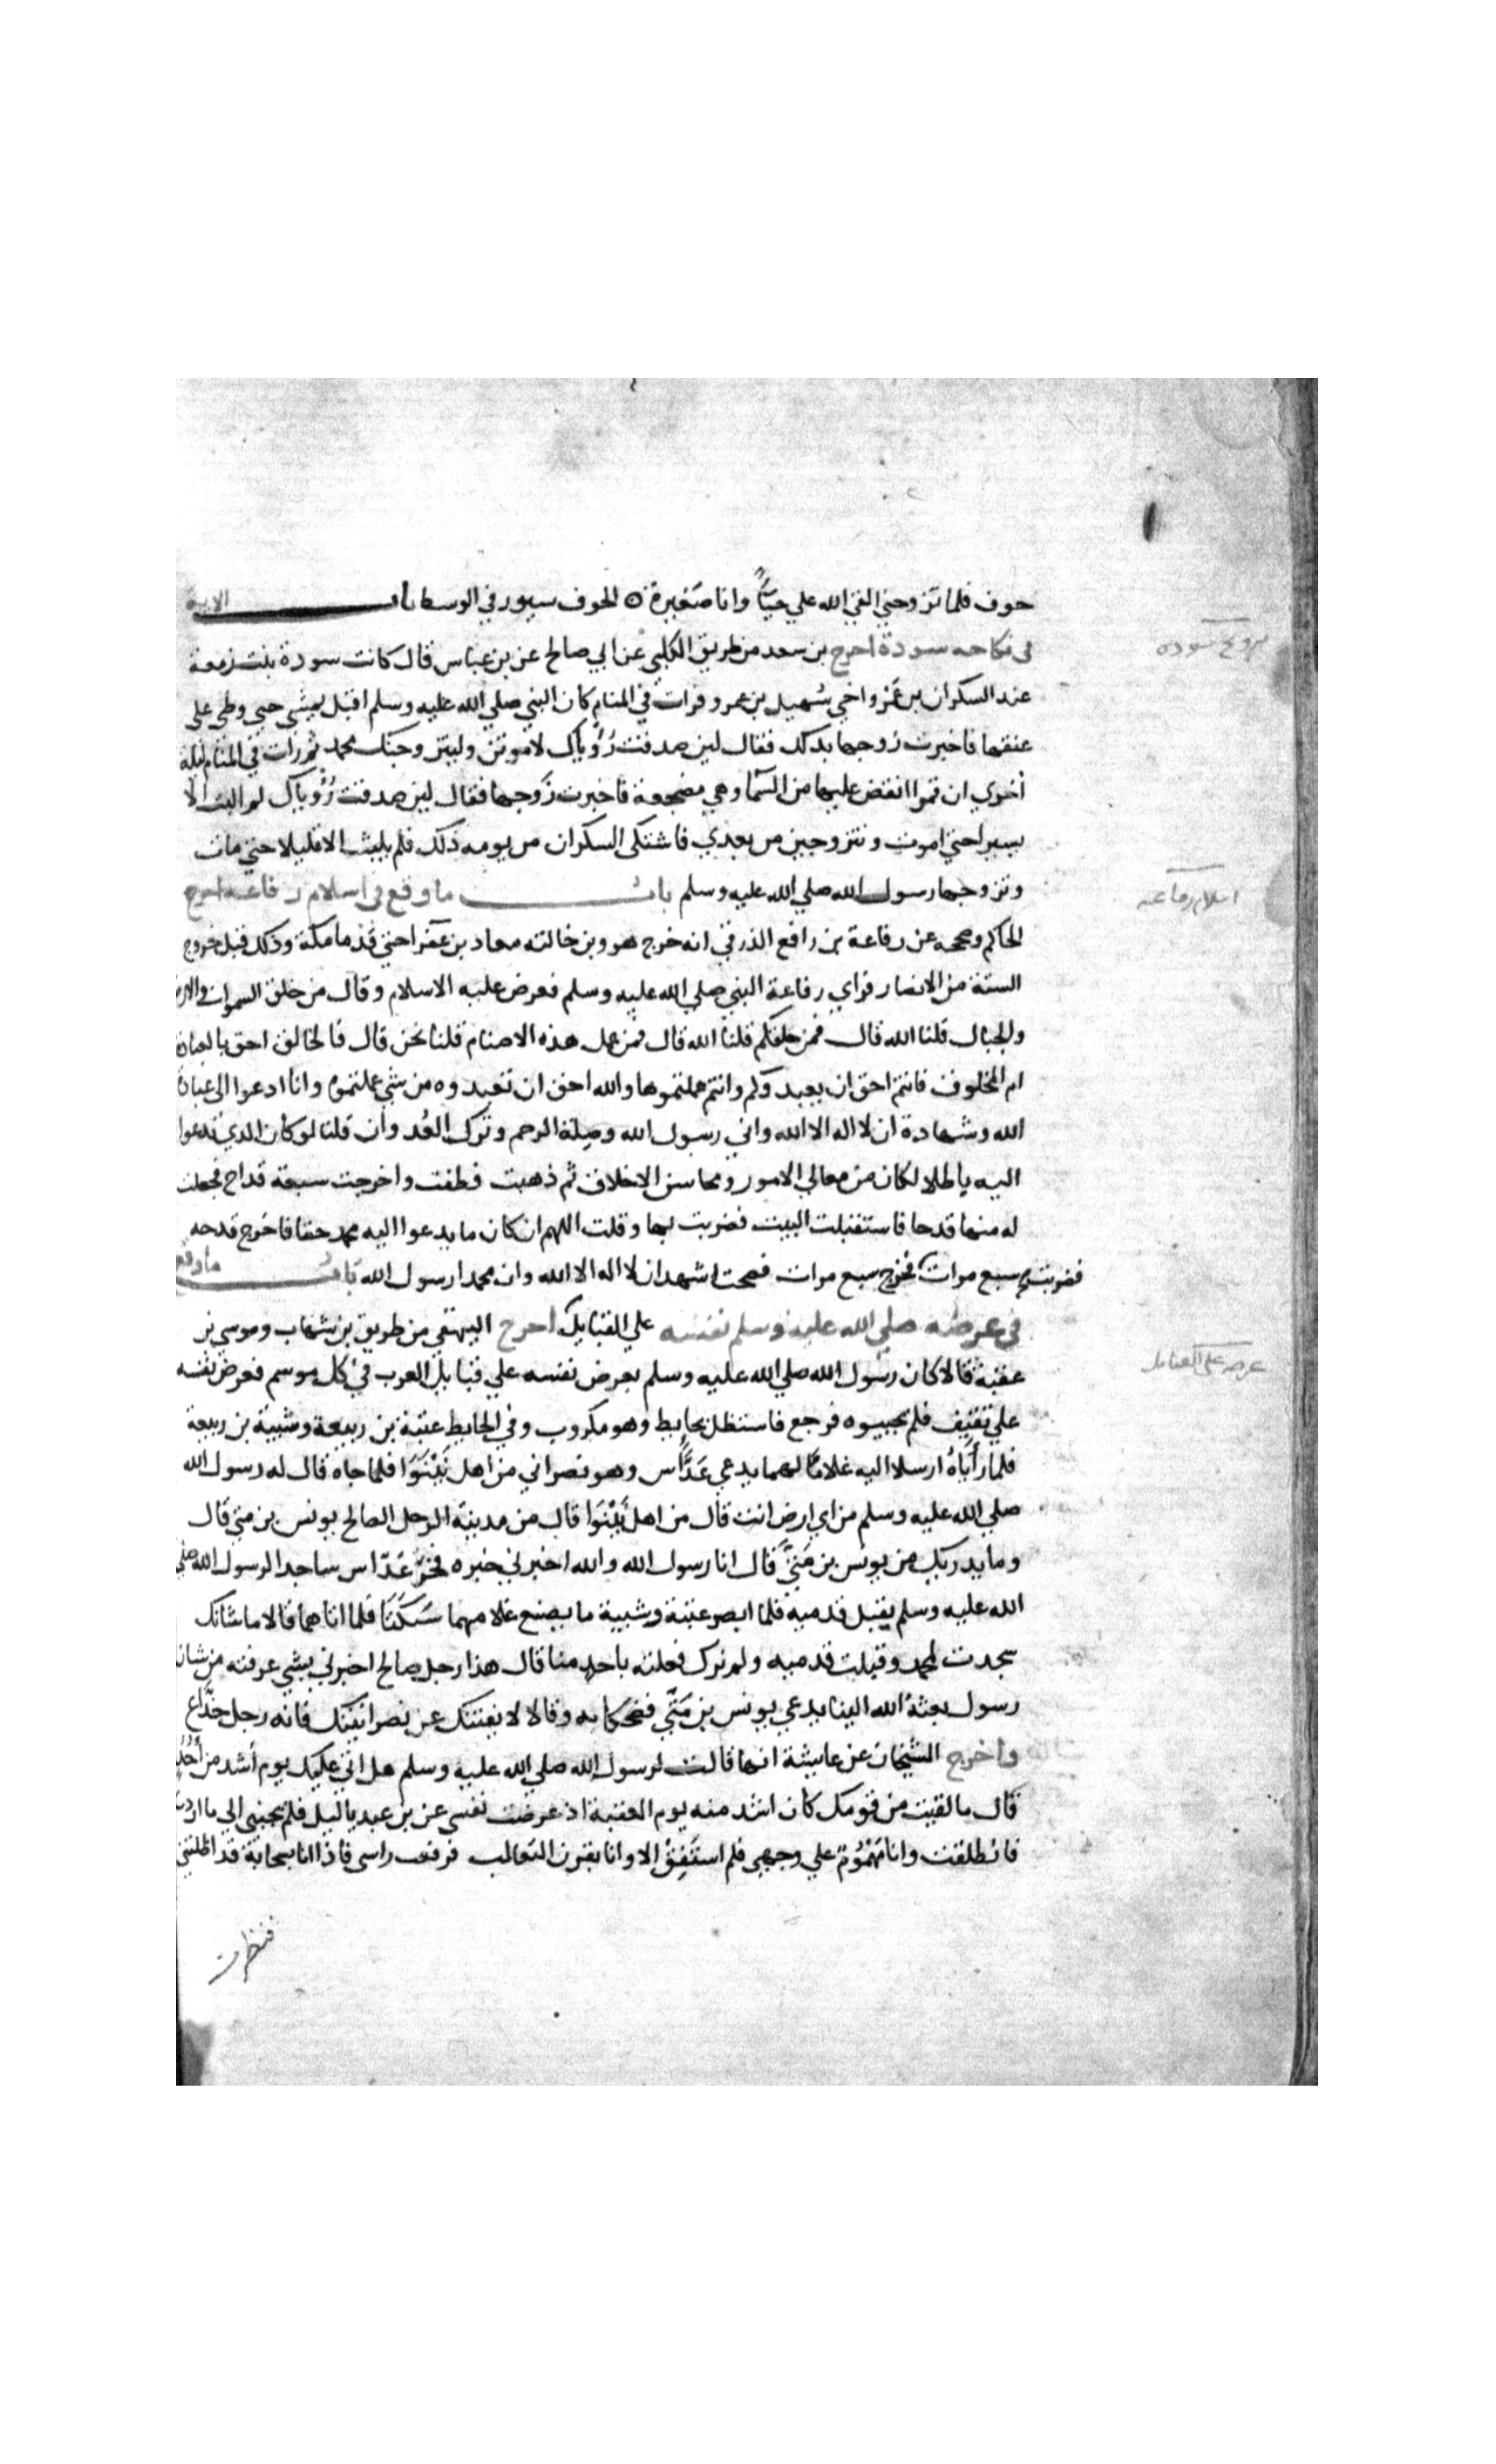 حوف فلما تزوجني القي الله علي حيّاً وانا صَغيرة ه الحوف سيور في الوسط باب الاية
في نكاحه سودة اخرج بن سعد من طريق الكلبي عن ابي صالح عن بن عباس قال كانت سودة بنت زمعة
عند السكران بن عمرو اخي سُهيل بن عمرو فرات في المنام كان النبي صلي الله عليه وسلم اقبل يمشي حتي وطي علي
عنقها فاخبرت زوجها بذلك فقال لين صدقت رُؤياك لاموتن وليتزوجنك محمد ثم رات في المنام ليلة
اخري ان قمرا انقض عليها من السّما وهي مضجعة فاخبرت زَوجها فقال لين صدقت رُؤياك لم البث الا
يسيرا حتي اموت وتتزوجين من بعدي فاشتكي السكران من يومه ذلك فلم يلبث الا قليلا حتي مات
وتزوجها رسول الله صلي الله عليه وسلم باب ما وقع في اسلام رفاعه اخرج
الحاكم وصححه عن رفاعة بن رافع الذرقي انه خرج هو وبن خالته معاذ بن عفرا حتي قدما مكة وذلك قبل خروج
الستة من الانصار فراي رفاعة النبي صلي الله عليه وسلم فعرض عليه الاسلام وقال من خلق السموات والارض
والجبال قلنا الله قال فمن خلقكم قلنا الله قال فمن عمل هذه الاصنام قلنا نحن قال فالخالق احق بالعبادة
ام المخلوق فانتم احق ان يعبدوكم وانتم عملتموها والله احق ان تعبدوه من شي عملتموه وانا ادعوا الي عبادة
الله وشهادة ان لا اله الا الله واني رسول الله وصِلة الرحم وترك العُدوان قلنا لو كان الذي تدعوا
اليه باطلا لكان من معالي الامور ومحاسن الاخلاق ثم ذهبت فطفت واخرجت سبعة قداح فجعلت
له منها قدحا فاستقبلت البيت فضربت بها وقلت اللهم ان كان ما يدعوا اليه محمد حقا فاخرج قدحه
فضربت سبع مرات فخرج سبع مرات فصحت اشهد ان لا اله الا الله وان محمدا رسول الله باب ما وقع
في عرضه صلي الله عليه وسلم نفسه علي القبايل اخرج البيهقي من طريق بن شهاب وموسي بن
عقبة قالا كان رسول الله صلي الله عليه وسلم يعرض نفسه علي قبايل العرب في كل موسم فعرض نفسه
علي ثقيف فلم يجيبوه فرجع فاستظل بحايط وهو مكروب وفي الحايط عتبة بن ربيعة وشيبة بن ربيعة
فلما رأياهُ ارسلا اليه غلامًا لهما يدعي عَدَّاس وهو نصراني من اهل نَيْنَوَا فلما جاه قال له رسول الله
صلي الله عليه وسلم من اي ارض انت قال من اهل نَيْنَوَا قال من مدينة الرجل الصالح يونس بن متي قال
وما يدريك من يونس بن مَتّي قال انا رسول الله والله اخبرني خبره فخرّ عَدّاس ساجدا لرسول الله صلي
الله عليه وسلم يقبل قدميه فلما ابصر عتبة وشيبة ما يصنع غلامهما سَكَتَا فلما اتاهما قالا ما شانك
سجدت لمحمد وقبلت قدميه ولم نرك فعلته باحد منا قال هذا رجل صالح اخبرني بشي عرفته من شان
رسول بعثهُ الله الينا يدعي يونس بن مَتّي فضحكا به وقالا لا يفتنك عن نصرانيتك فانه رجل خدَّاع
واخرج الشيخان عن عايشة انها قالت لرسول الله صلي الله عليه وسلم هل اتي عليك يوم أشد من أُحُدٍ
قال ما لقيت من قومك كان اشد منه يوم العقبة اذ عرضت نفسي عن بن عبد ياليل فلم يجبني الي ما اردت
فانطلقت وانا مَهْمُوْمٌ علي وجهي فلم استَفِقْ الا وانا بقرن الثعالب فرفعت راسي فاذا انا بسحابة قد اظلتني
فنظرت
تزوج سودة
اسلام رفاعة
عرضه علي القبايل